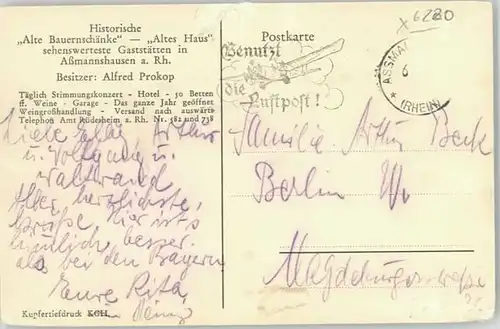 Historische
„Alte Bauernschänke“ — „Altes Haus“
sehenswerteste Gaststätten in
Aßmannshausen a. Rh.
Besitzer: Alfred Prokop
Täglich Stimmungskonzert - Hotel - 50 Betten
ff. Weine - Garage - Das ganze Jahr geöffnet
Weingroßhandlung - Versand nach auswärts
Telephon Amt Rüdesheim a. Rh. Nr. 582 und 738
Liebe Arthur
u. Wolfgang u.
Waltraud
herzlichste
Grüße. Hier ist's
besser
als bei den Bayern
Eure Rita
Kupfertiefdruck KGH.
Postkarte
6280
Benutzt
die
Luftpost!
ASSMA
6
(RHEIN)
Familie Arthur Beck
Berlin W.
Magdeburgerstrasse